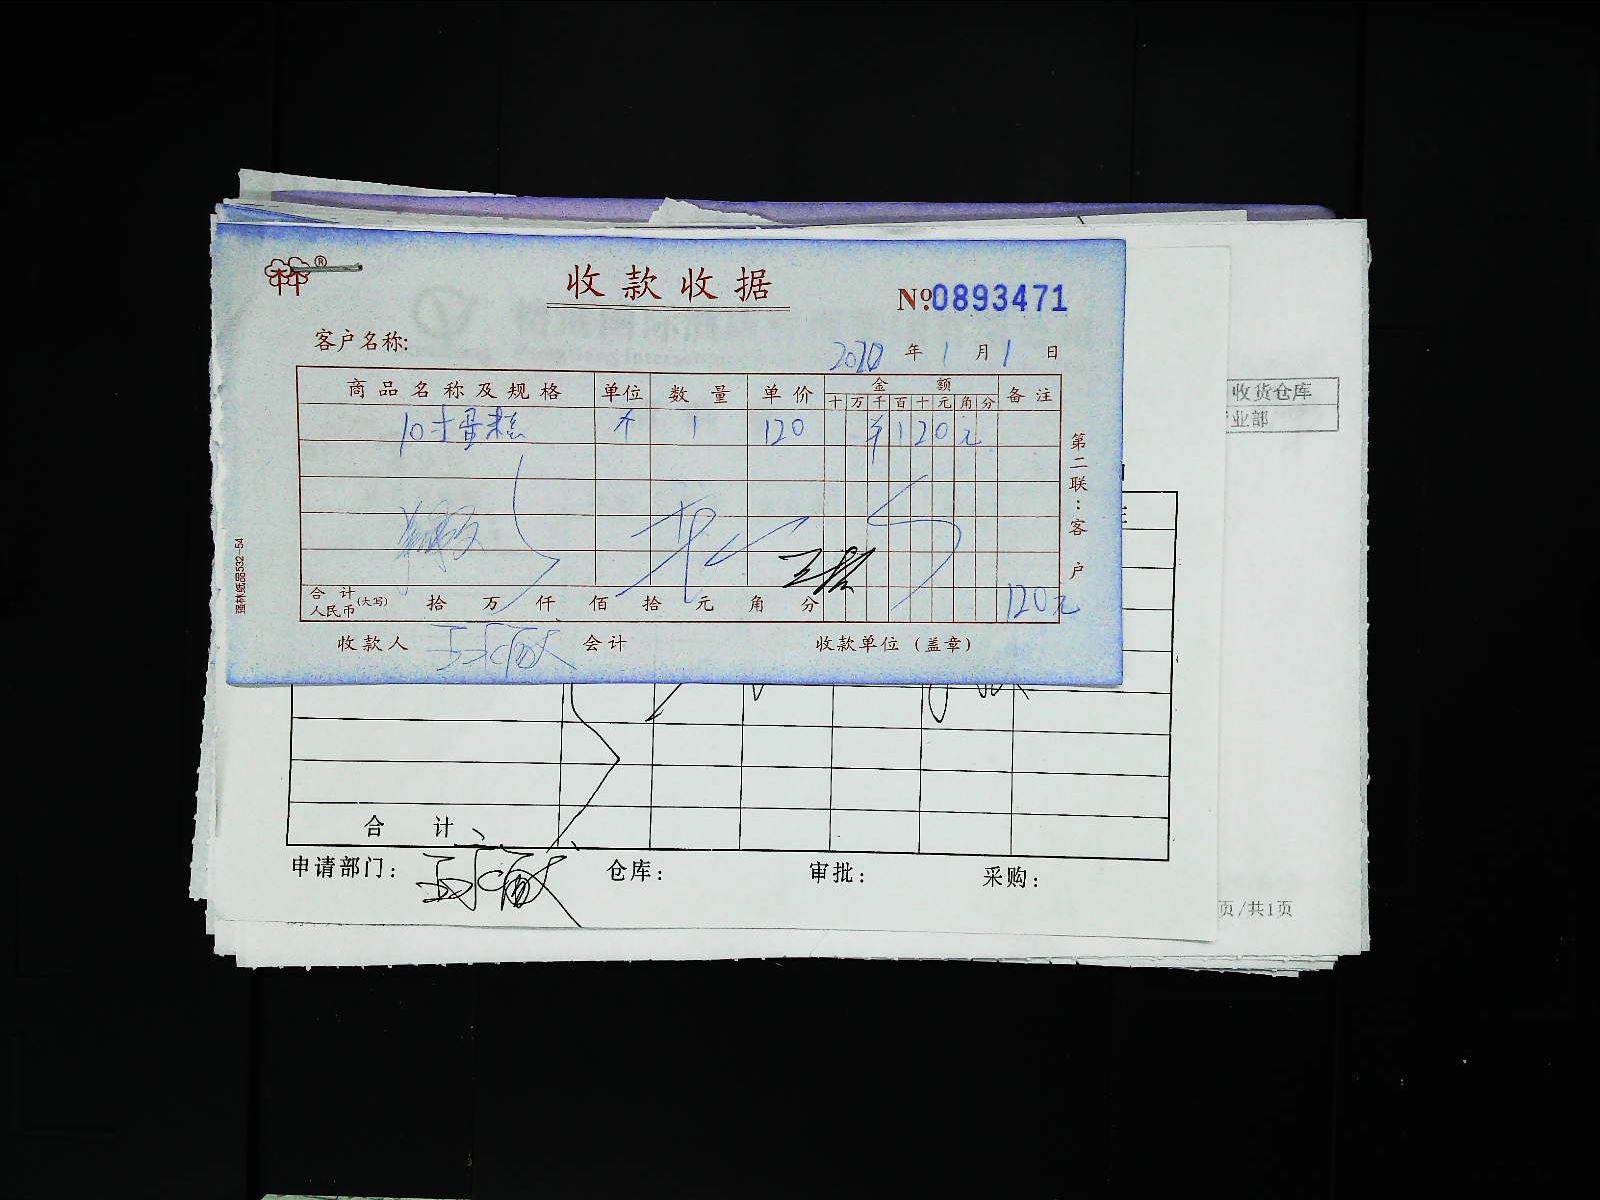 收款收据
№0893471
客户名称:
2020年1月1日
商品名称及规格 单位 数量 单价 金额 备注
十 万 千 百 十 元 角 分
10寸蛋糕 个 1 120 ¥120元
第二联:客户
合计人民币(大写) 拾 万 仟 佰 拾 元 角 分 120元
收款人 会计 收款单位(盖章)
收货仓库
业部
合计
申请部门: 仓库: 审批: 采购:
页/共1页